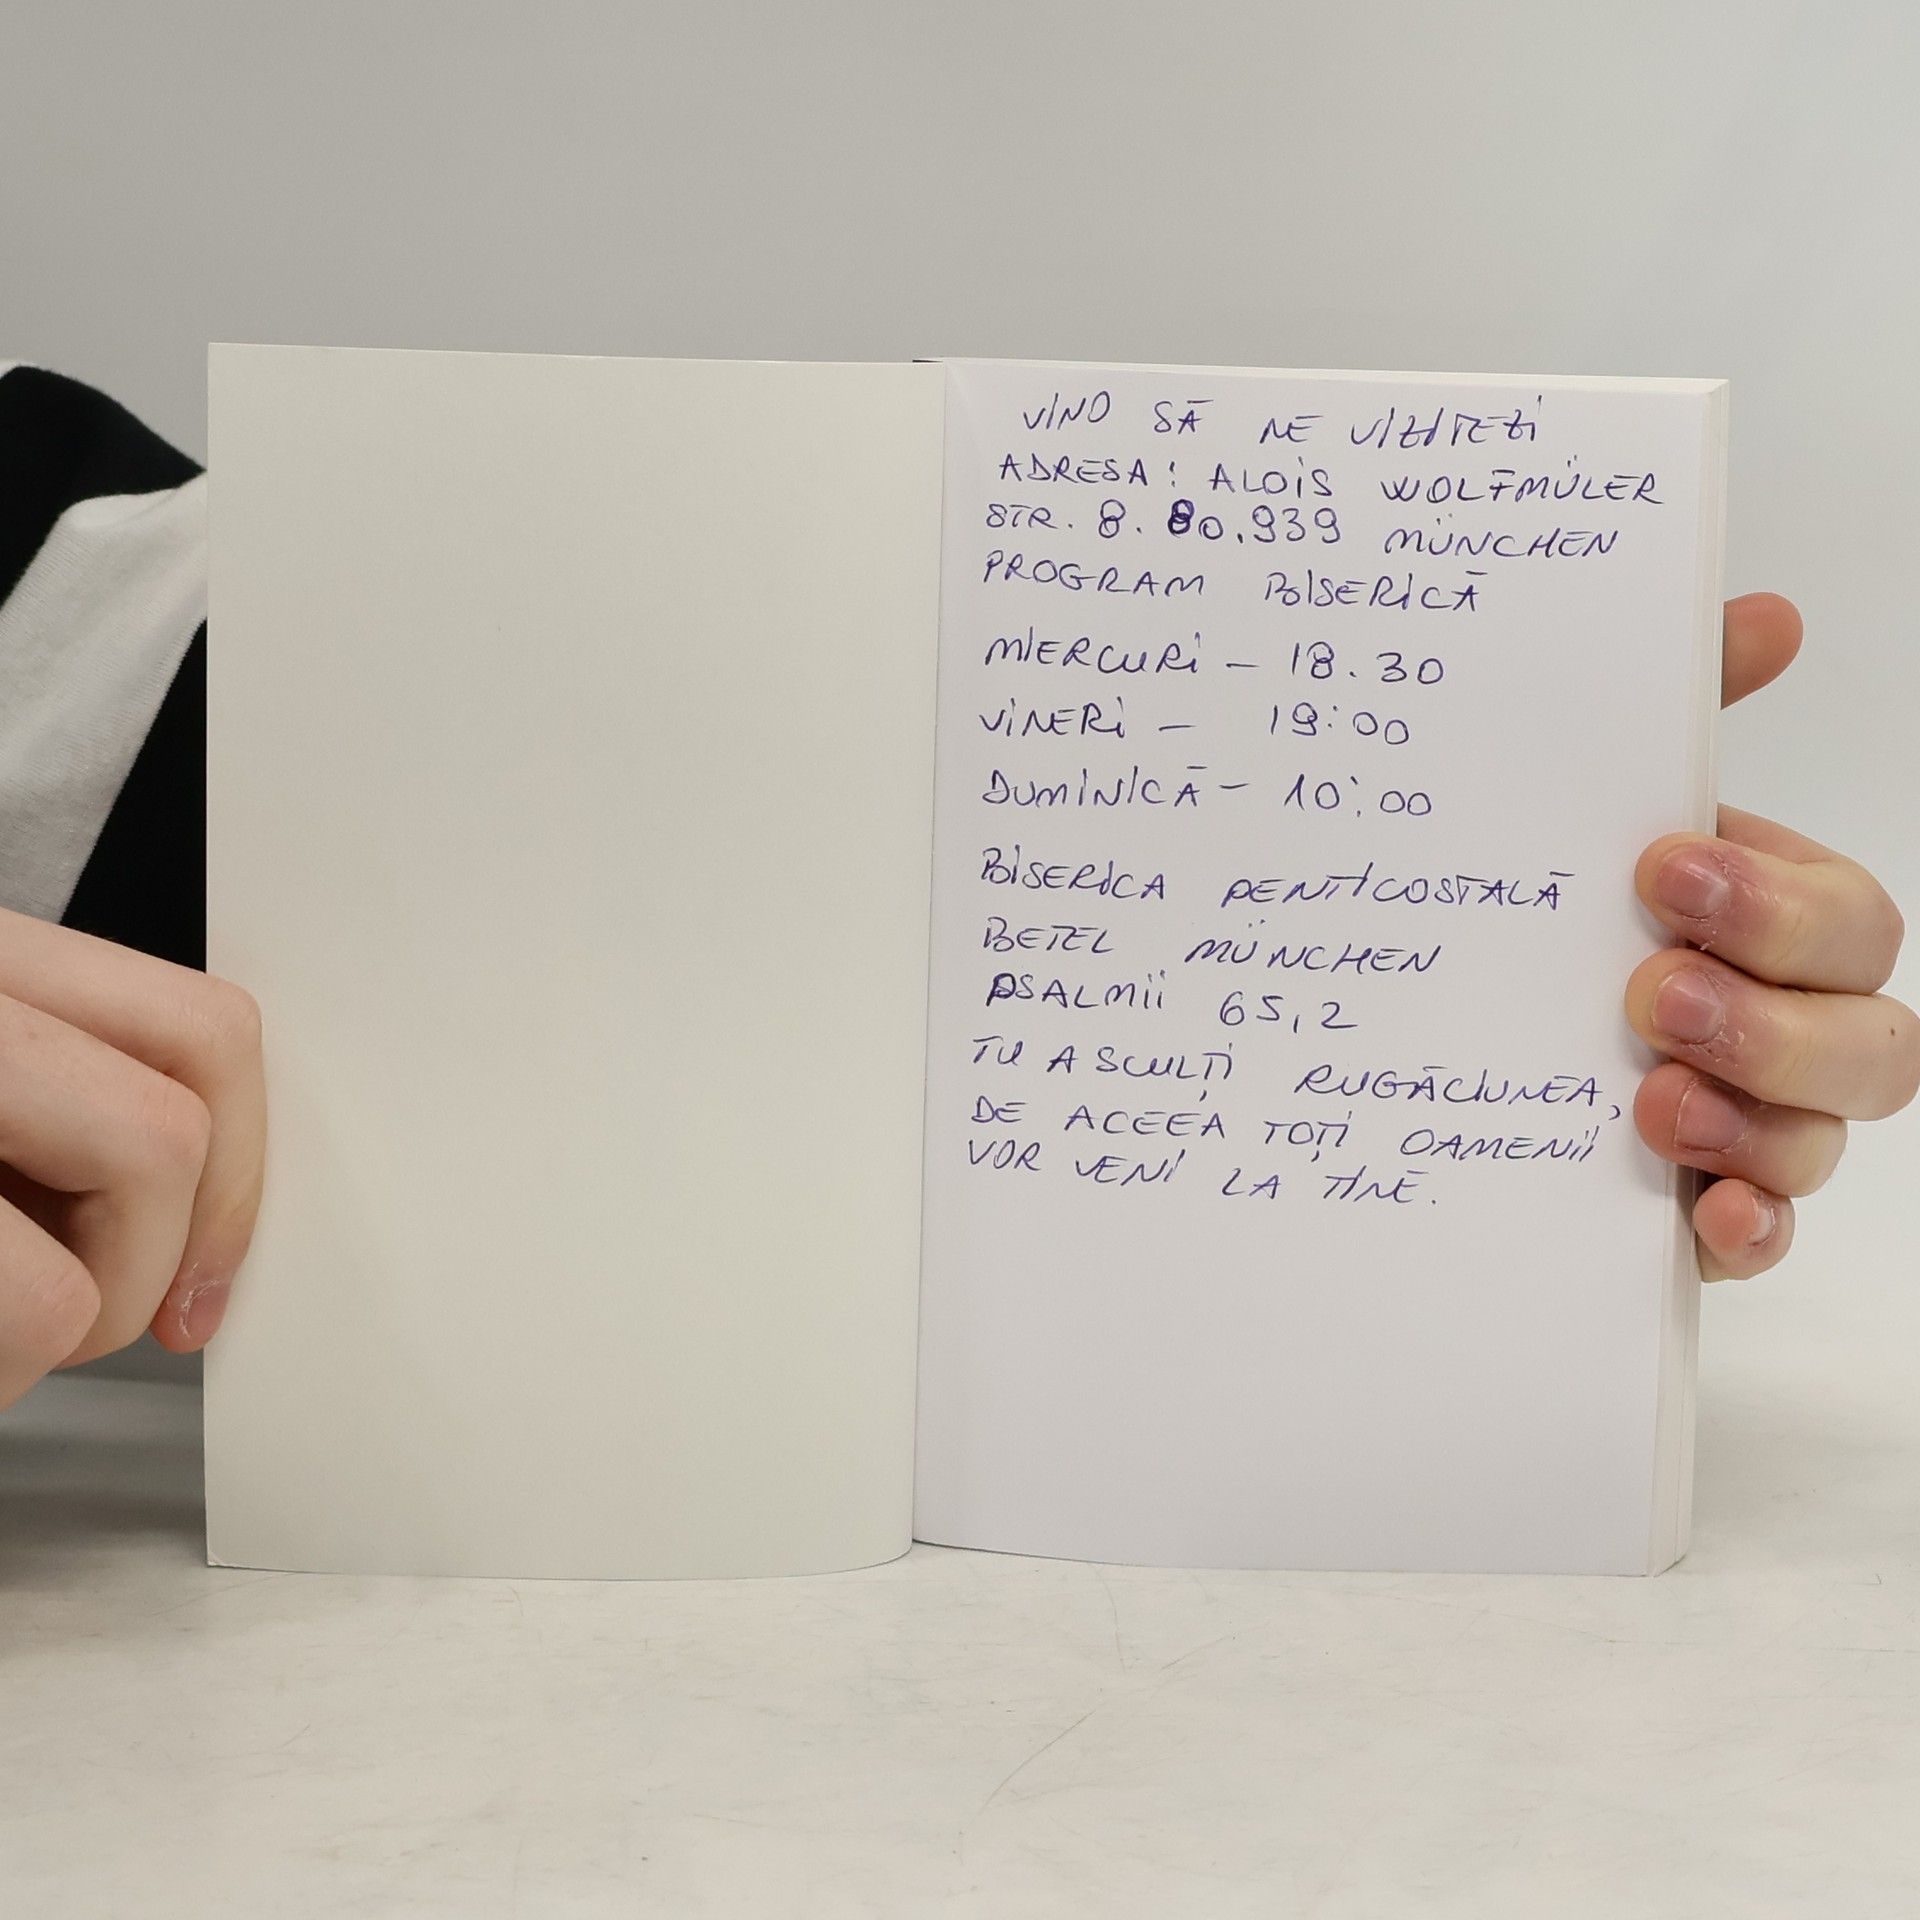 VINO SĂ NE VIZITEZI
ADRESA: ALOIS WOLFMÜLER
STR. 8. 80.939 MÜNCHEN
PROGRAM BISERICĂ
MIERCURI – 18.30
VINERI – 19:00
DUMINICĂ – 10:00
BISERICA PENTICOSTALĂ
BETEL MÜNCHEN
PSALMII 65,2
TU ASCULȚI RUGĂCIUNEA,
DE ACEEA TOȚI OAMENII
VOR VENI LA TINE.